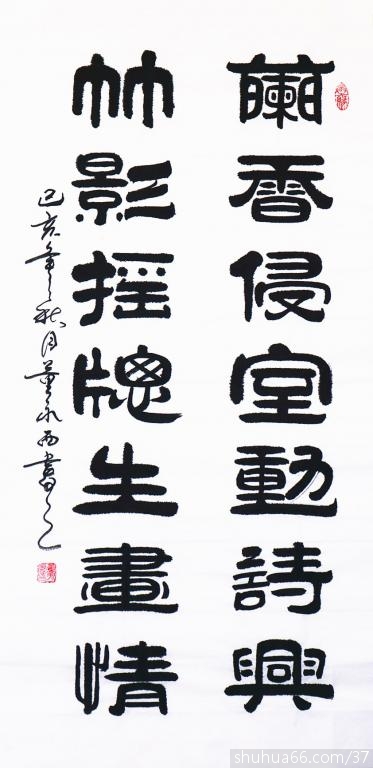 蘭香侵室動詩興
竹影摇窗生畫情
己亥年秋月董永西書之
shuhua66.com/37